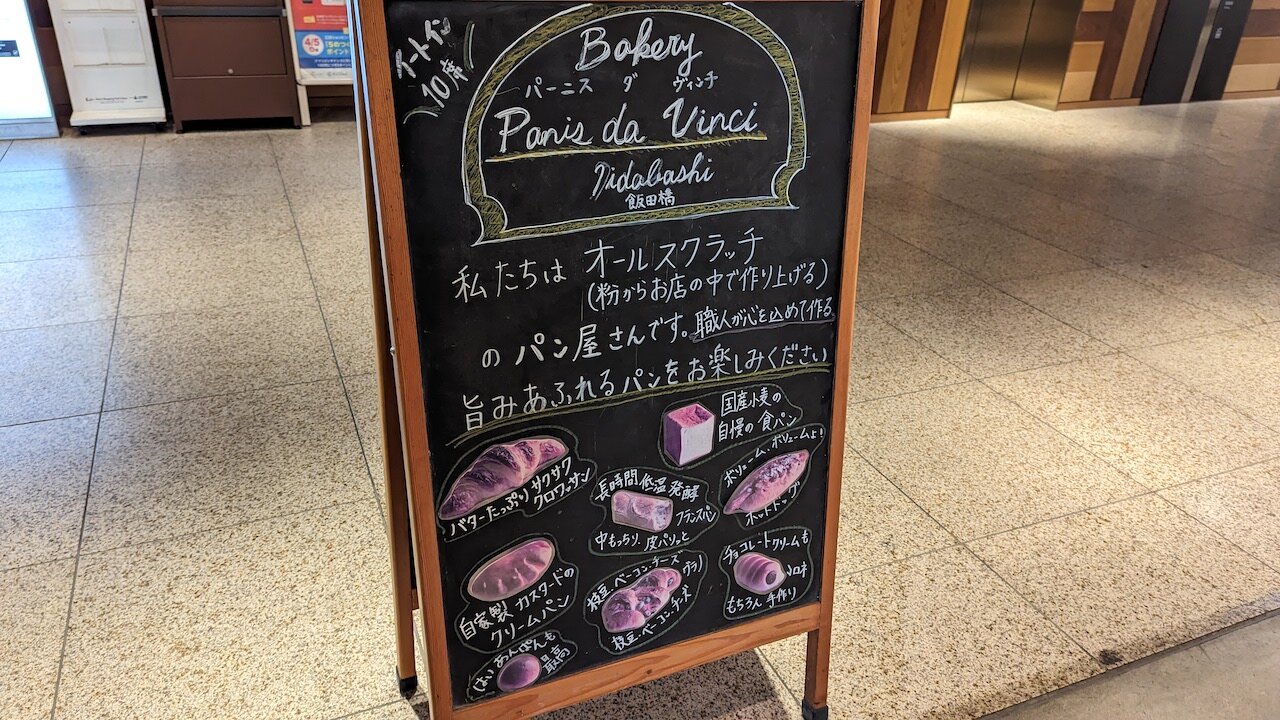 イートイン
10席
Bakery
パーニス ダ ヴィンチ
Panis da Vinci
Iidabashi
飯田橋
私たちは オールスクラッチ
(粉からお店の中で作り上げる)
のパン屋さんです。職人が心を込めて作る
旨みあふれるパンをお楽しみください
国産小麦の
自慢の食パン
バターたっぷりサクサク
クロワッサン
長時間低温発酵
フランスパン
中もっちり、皮パリっと
ボリューム、ボリュームよ!
ホットドッグ
自家製カスタードの
クリームパン
枝豆・ベーコン・チーズ
枝豆・ベーコン・チーズ
チョコレートクリームも
コロネ
もちろん手作り
はい あんぱんも
最高
4/5